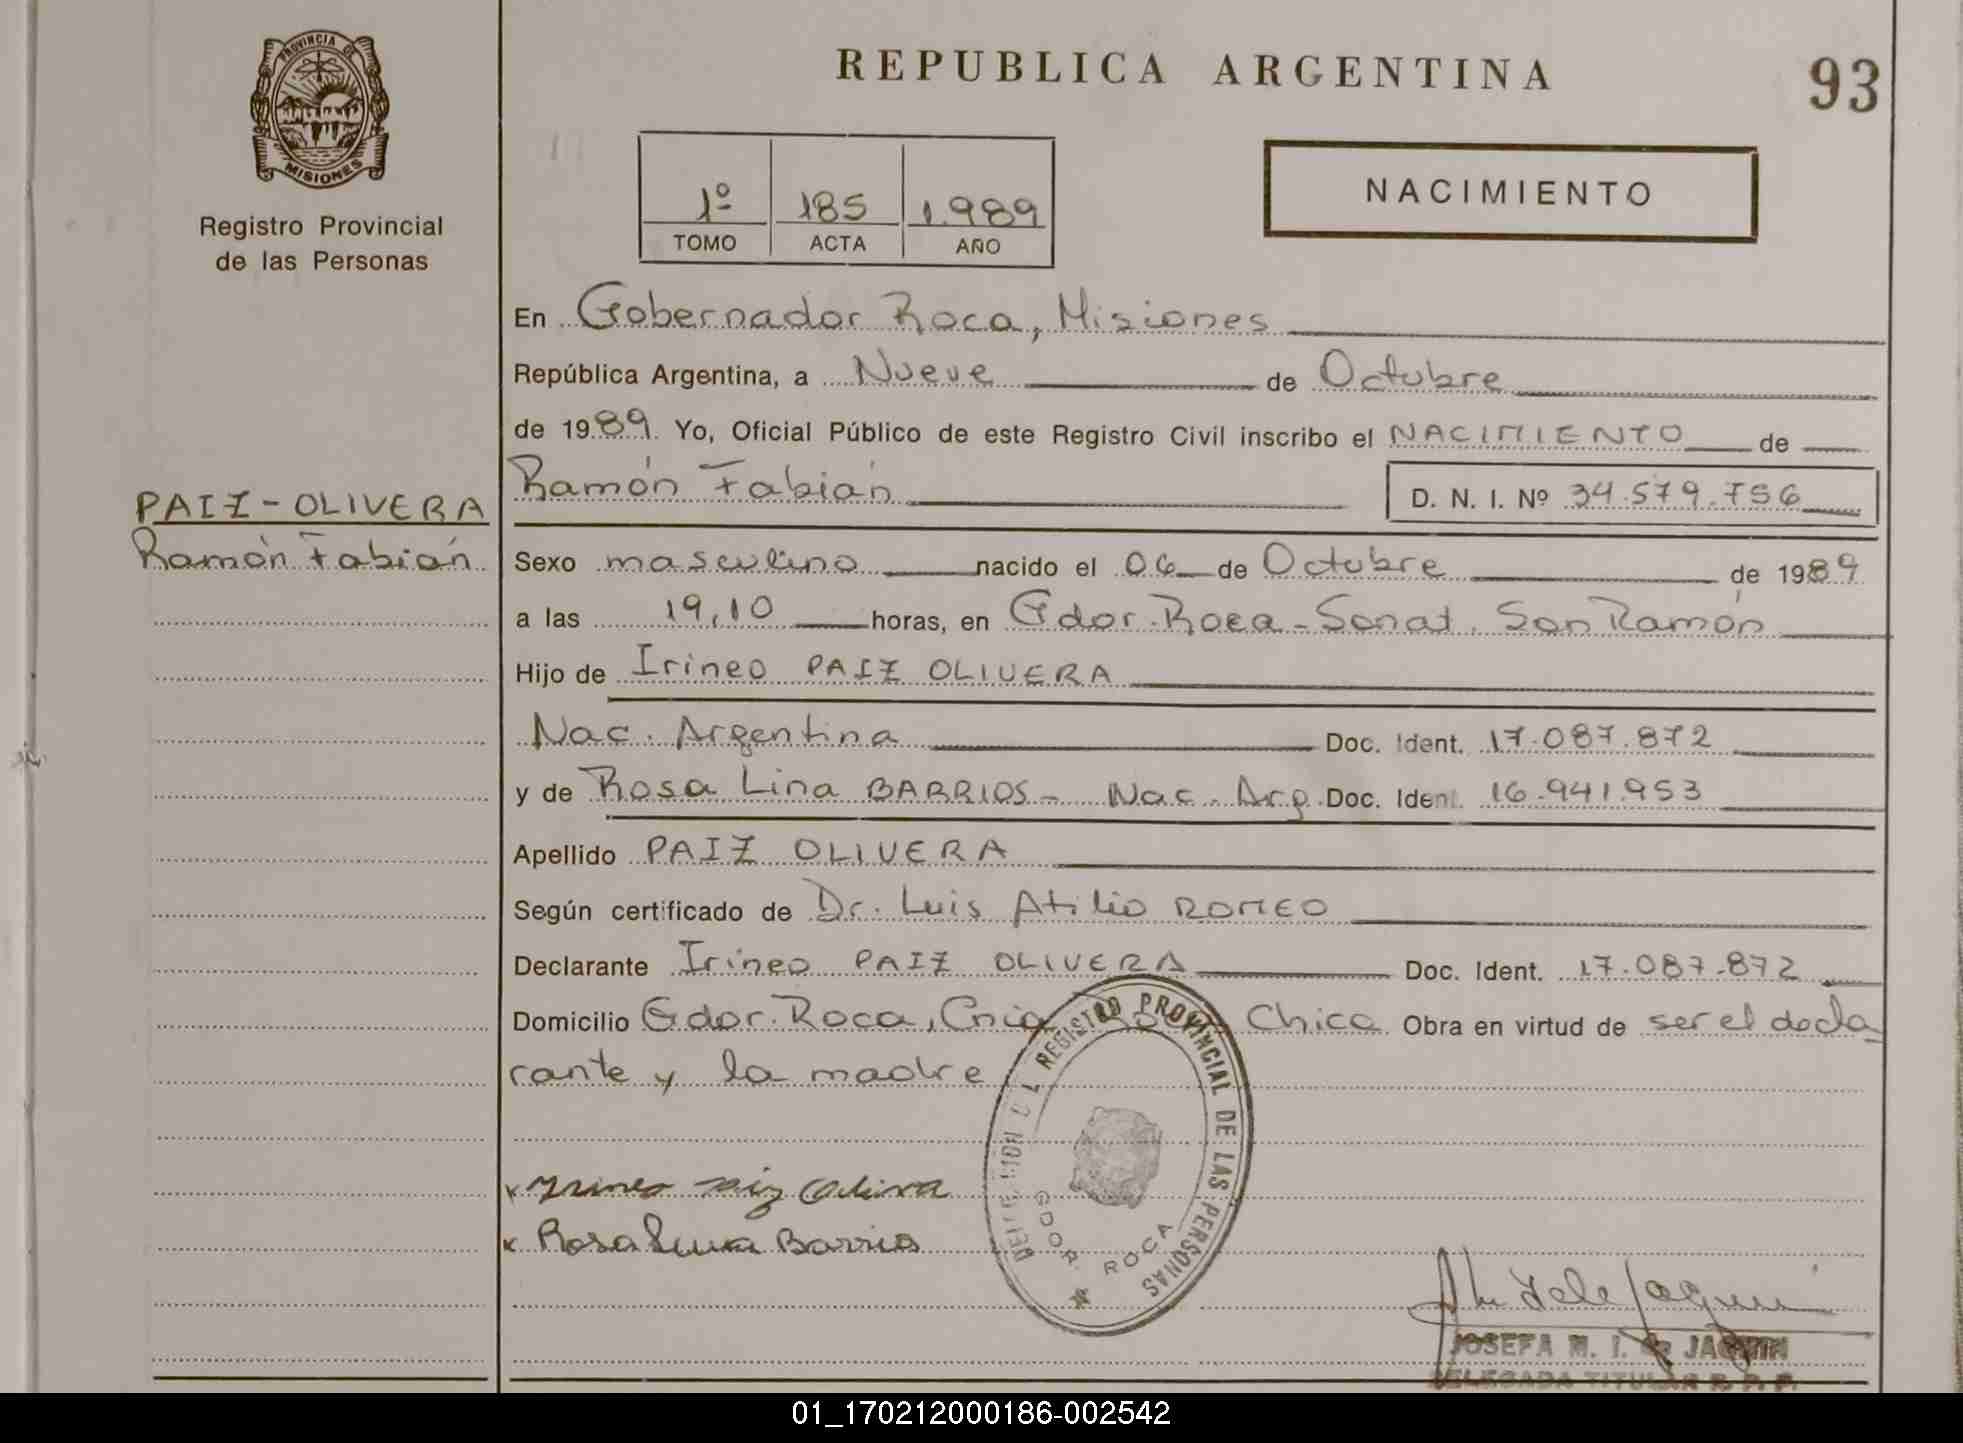 PROVINCIA DE
MISIONES
Registro Provincial
de las Personas
REPUBLICA ARGENTINA
93
1º 185 1.989
TOMO ACTA AÑO
NACIMIENTO
En Gobernador Roca, Misiones
República Argentina, a Nueve de Octubre
de 1989. Yo, Oficial Público de este Registro Civil inscribo el NACIMIENTO de
Ramón Fabián
D. N. I. Nº 34.579.756
PAIZ-OLIVERA
Ramón Fabián
Sexo masculino nacido el 06 de Octubre de 1989
a las 19,10 horas, en Gdor. Roca - Sanat. San Ramón
Hijo de Irineo PAIZ OLIVERA
Nac. Argentina Doc. Ident. 17.087.872
y de Rosa Lina BARRIOS - Nac. Arg. Doc. Ident. 16.941.953
Apellido PAIZ OLIVERA
Según certificado de Dr. Luis Atilio ROMEO
Declarante Irineo PAIZ OLIVERA Doc. Ident. 17.087.872
Domicilio Gdor. Roca, Cnia Roca Chica Obra en virtud de ser el decla
rante y la madre
REGISTRO PROVINCIAL DE LAS PERSONAS
GDOR. ROCA
Irineo Paiz Olivera
Rosa Lina Barrios
JOSEFA M. I. de JAQUIN
DELEGADA TITULAR R. P. P.
01_170212000186-002542